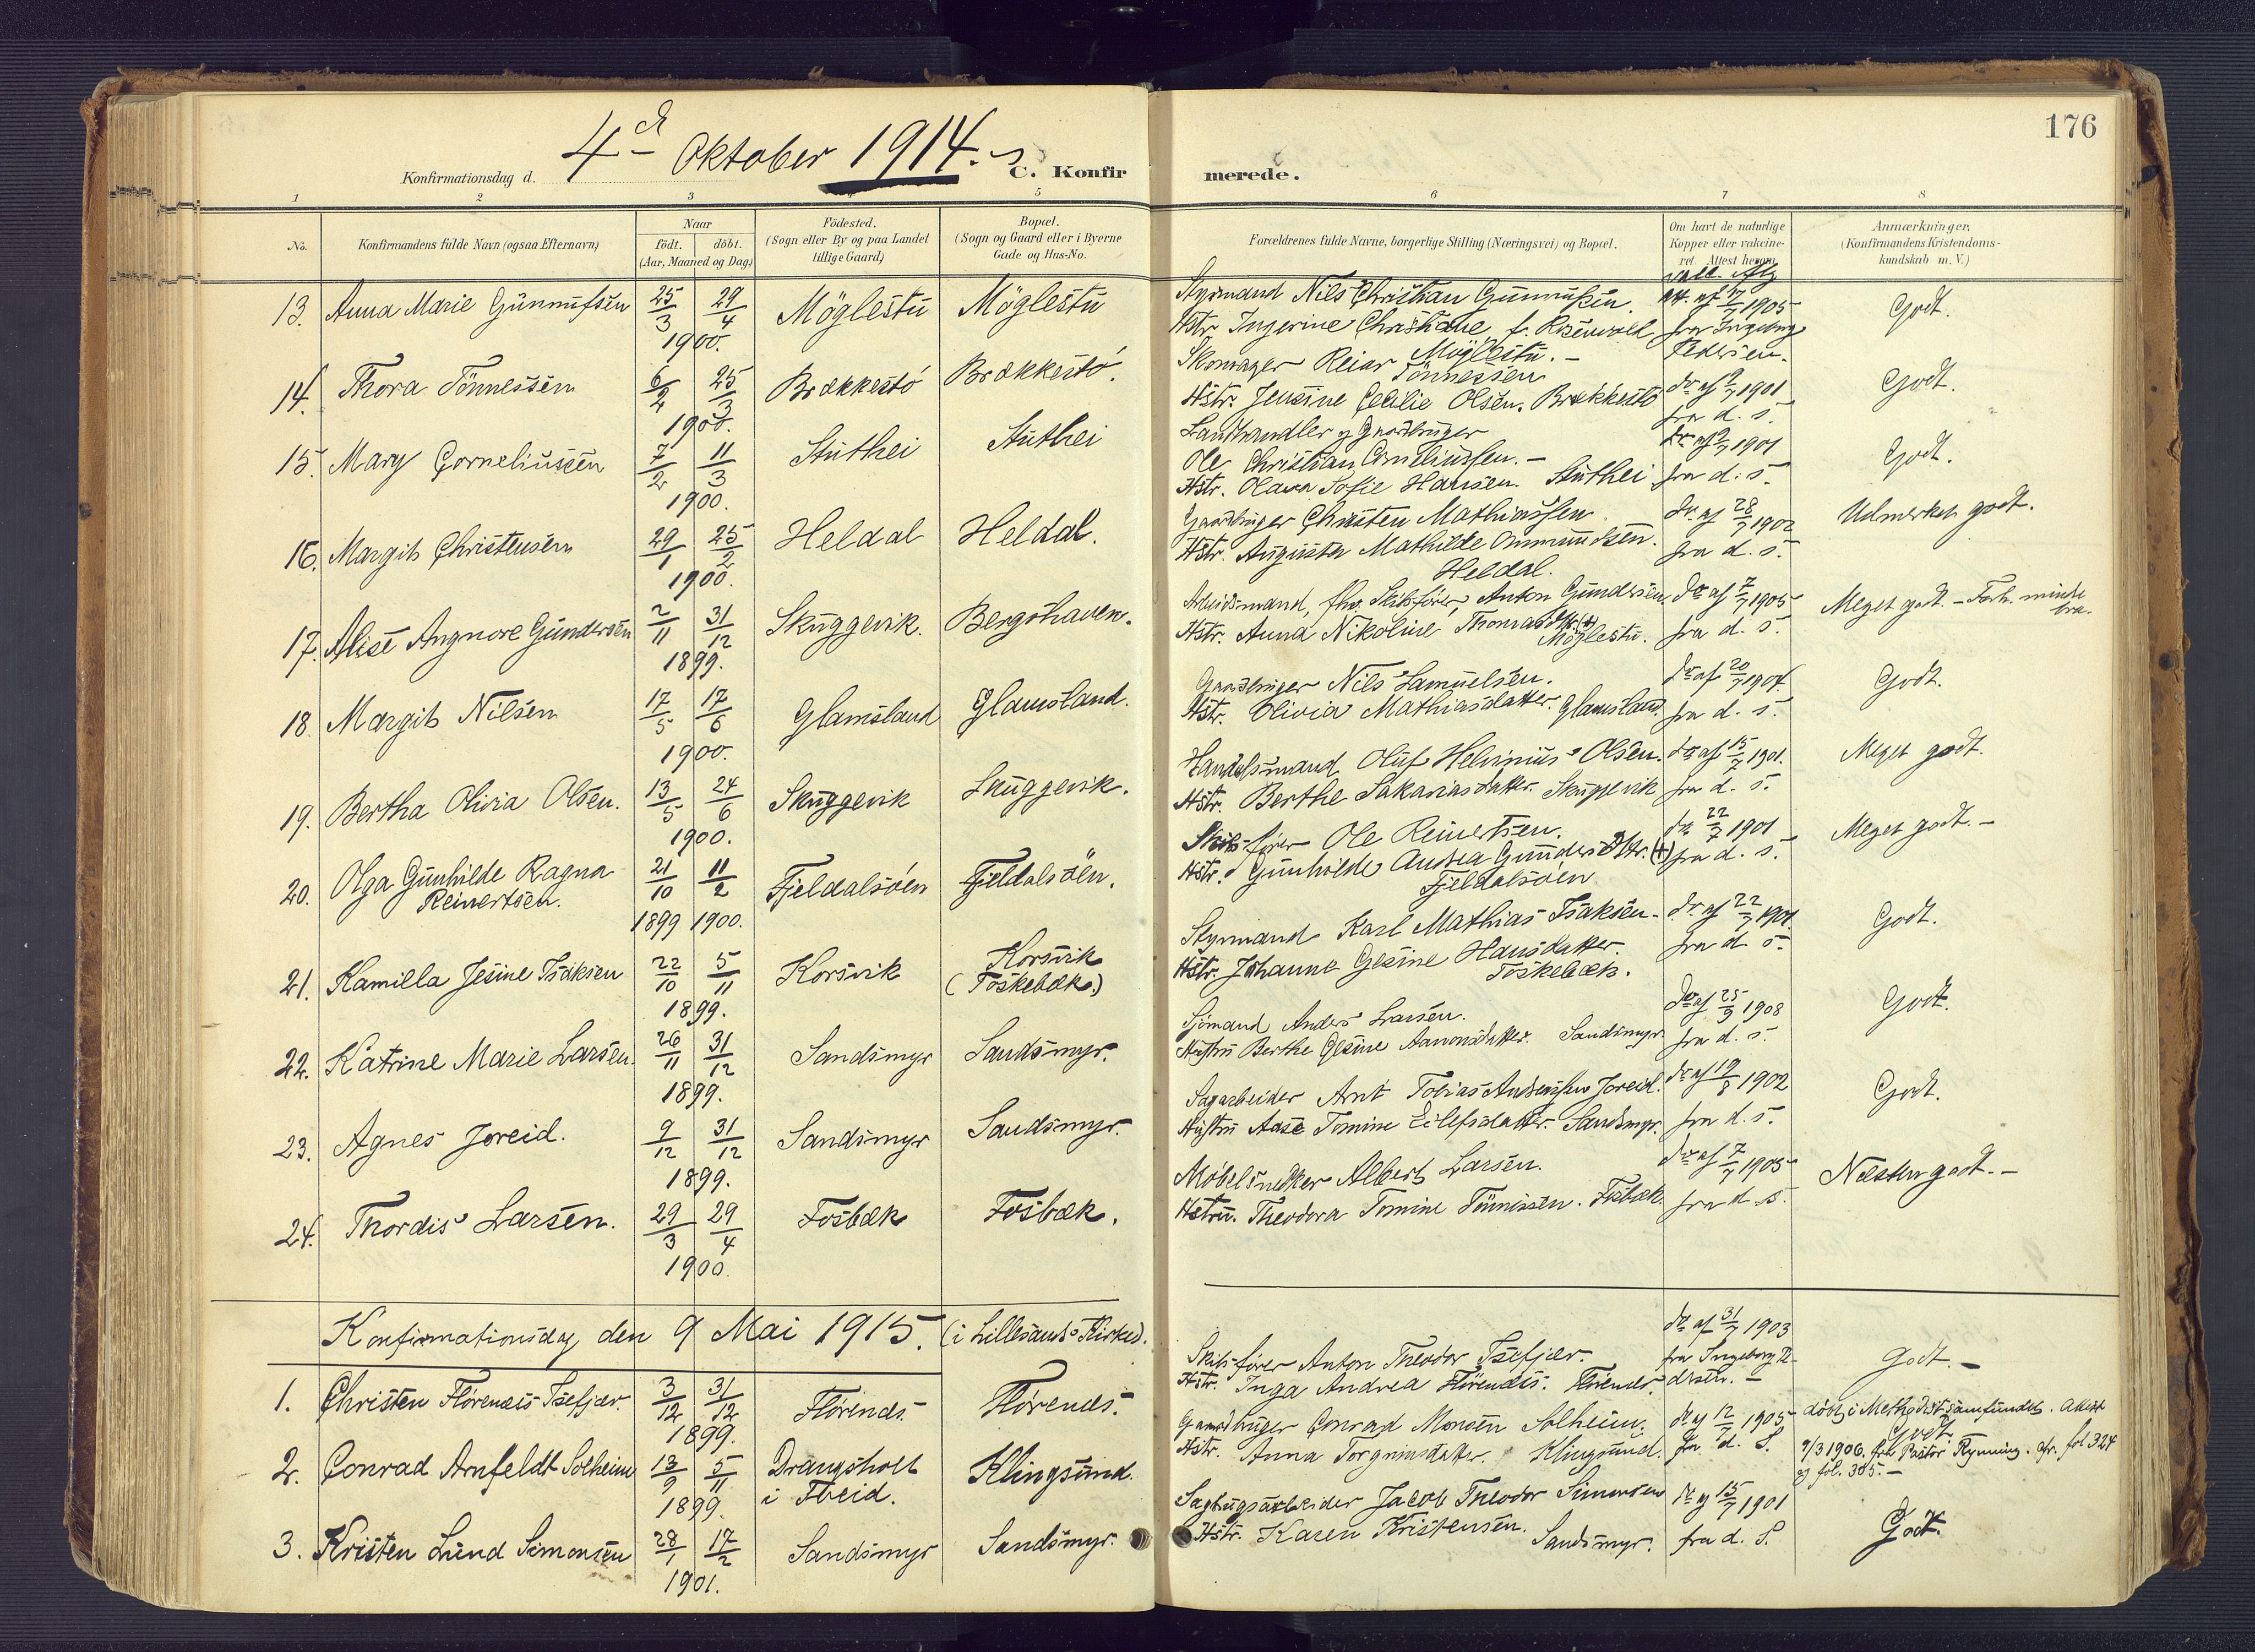 176
4de Oktober 1914.
Konfirmationsdag d.
C. Konfir
merede.
1 2 3 5 6 7 8
No.
Konfirmandens fulde Navn (ogsaa Efternavn)
Naar
födt. döbt.
(Aar, Maaned og Dag)
Födested.
(Sogn eller By og paa Landet
tillige Gaard)
Bopæl.
(Sogn og Gaard eller i Byerne
Gade og Hus-No.
Forældrenes fulde Navne, borgerlige Stilling (Næringsvei) og Bopæl.
Om havt de naturlige
Kopper eller vakcine-
ret. Attest herom.
Anmærkninger,
(Konfirmandens Kristendoms-
kundskab m. V.)
13. Anna Marie Gunnufsen 25/3 29/4 Möglestu Möglestu
1900.
Styrmand Nils Christian Gunnufsen.
Hstr. Ingerine Christiane f. Rosenvold
Möglestu. -
1905
fra Ingeborg
Pedersen.
Godt.
14. Thora Tönnessen 6/2 25/3 Brækkestö Brækkestö.
1900.
Skomager Reier Tönnessen
Hstr. Jensine Cecilie Olsen. Brækkestö
do af 9/7 1901
fra d. s.
Godt.
15. Mary Corneliussen 7/2 11/3 Stuthei Stuthei
1900.
Landhandler og Gaardbruger
Ole Christian Corneliussen. -
Hstr. Olava Sofie Hansen. Stuthei
do af 9/7 1901
fra d. s.
Godt.
16. Margit Christensen 29/1 25/2 Heldal Heldal.
1900.
Gaardbruger Christen Mathiassen
Hstr. Augusta Mathilde Ommundsen.
Heldal.
do af 28/7 1902
fra d. s.
Udmerket godt.
17. Alise Angnore Gundersen 2/11 31/12 Skuggevik. Bergshaven.
1899.
Arbeidsmand, fhv. Skibsförer, Anton Gundersen.
Hstr. Anna Nikoline Thomasdtr. (+)
Möglestu.
do af 7/7 1905
fra d. s.
Meget godt. - Forh. mindre
bra.
18. Margit Nilsen 17/5 17/6 Glamsland Glamsland.
1900.
Gaardbruger Nils Samuelsen.
Hstr. Olivia Mathiasdatter. Glamsland.
do af 20/7 1904.
fra d. s.
Godt.
19. Bertha Olivia Olsen. 13/5 24/6 Skuggevik Skuggevik.
1900.
Handelsmand Oluf Helvinius Olsen.
Hstr. Berthe Sakariasdatter. Skuggevik
do af 15/7 1901.
fra d. s.
Meget godt.
20. Olga Gunhilde Ragna 21/10 11/2 Fjeldalsöen Fjeldalsöen.
Reinertsen.
1899 1900.
Skibsförer Ole Reinertsen.
Hstr. Gunhilde Andrea Gundersdtr. (+)
Fjeldalsöen
do 22/7 1901
fra d. s.
Meget godt. -
21. Kamilla Jesine Isaksen 22/10 5/11 Korsvik Korsvik
(Toskebæk.)
1899.
Styrmand Karl Mathias Isaksen.
Hstr. Johanne Gesine Hansdatter.
Toskebæk.
do af 22/7 1901
fra d. s.
Godt.
22. Katrine Marie Larsen. 26/11 31/12 Sandsmyr Sandsmyr.
1899.
Sjömand Anders Larsen.
Hustru Berthe Gesine Aanonsdatter. Sandsmyr.
do af 25/9 1908
fra d. s.
Godt.
23. Agnes Joreid. 9/12 31/12 Sandsmyr Sandsmyr.
1899.
Sagarbeider Arnt Tobias Andreassen Joreid.
Hustru Aase Tomine Eilefsdatter. Sandsmyr.
do af 19/8 1902
fra d. s.
Godt.
24. Thordis Larsen. 29/3 29/4 Fosbæk Fosbæk.
1900.
Möbelsnedker Albert Larsen.
Hstru. Theodora Tomine Tönnissen. Fosbæk.
do af 7/7 1905
fra d. s.
Næsten godt. -
Konfirmationsdag den 9 Mai 1915. (i Lillesands Kirke).
1. Christen Florenæs Isefjær. 3/12 31/12 Florenæs Florenæs.
1899.
Skibsförer Anton Theodor Isefjær.
Hstr. Inga Andrea Florenæs. Florenæs.
do af 31/7 1903
fra Ingeborg Pe-
dersen. -
Godt. -
2. Conrad Arnfeldt Solheim 13/9 5/11 Drangsholt Klingsund.
i Tveid.
1899.
Gaardbruger Conrad Monsen Solheim.
Hstr. Anna Torgrimsdatter. Klingsund.
do af 12/7 1905
fra d. S.
döbt i Methodistsamfundet. Attest
Godt.
9/3 1906. fra Pastor Rynning. cfr. fol 324
og fol. 305. -
3. Kristen Lund Simonsen 28/1 17/2 Sandsmyr Sandsmyr.
1901.
Sagbrugsarbeider Jacob Theodor Simonsen
Hstr. Karen Kristensen.
Sandsmyr.
do af 15/7 1901
fra d. S.
Godt.